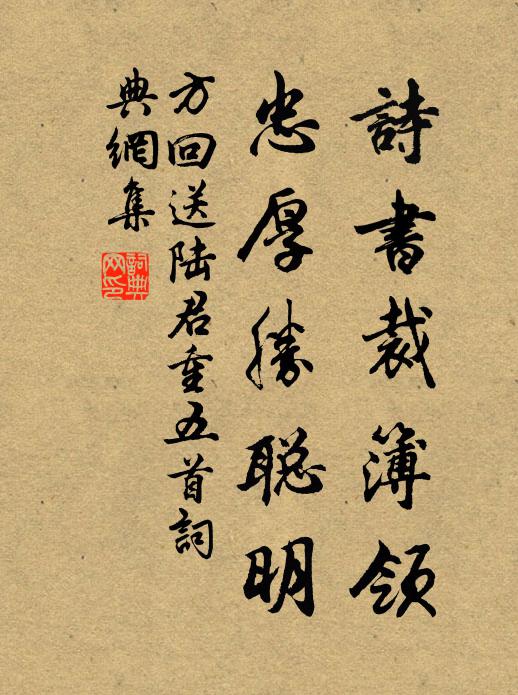 詩書裁簿領
忠厚勝聰明
方回送陆君重五首詞
典網集
詞典网印